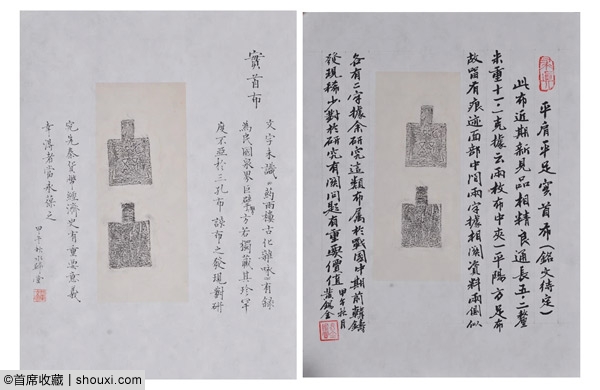 實首布
文字未識《葯雨樓古化雜咏》有錄
為民國泉界巨擘方若獨藏其珍罕
度不亞於三孔布該布之發現對研
究先秦貨幣經濟史有重要意義
幸得者當永葆之
甲午秋
平肩平足實首布(銘文待定)
此布近期新見品相精良通長五.二釐
米重十一.克據云兩枚布中夾(平陽方足布
故留有痕迹面部中間兩字據相関資料兩側似
各有二字據余研究這類布属於戰國中期前韓鑄
發現稀少對於研究有関問題有重要價值
甲午秋月
黄錫全
@首席收藏 | shouxi.com